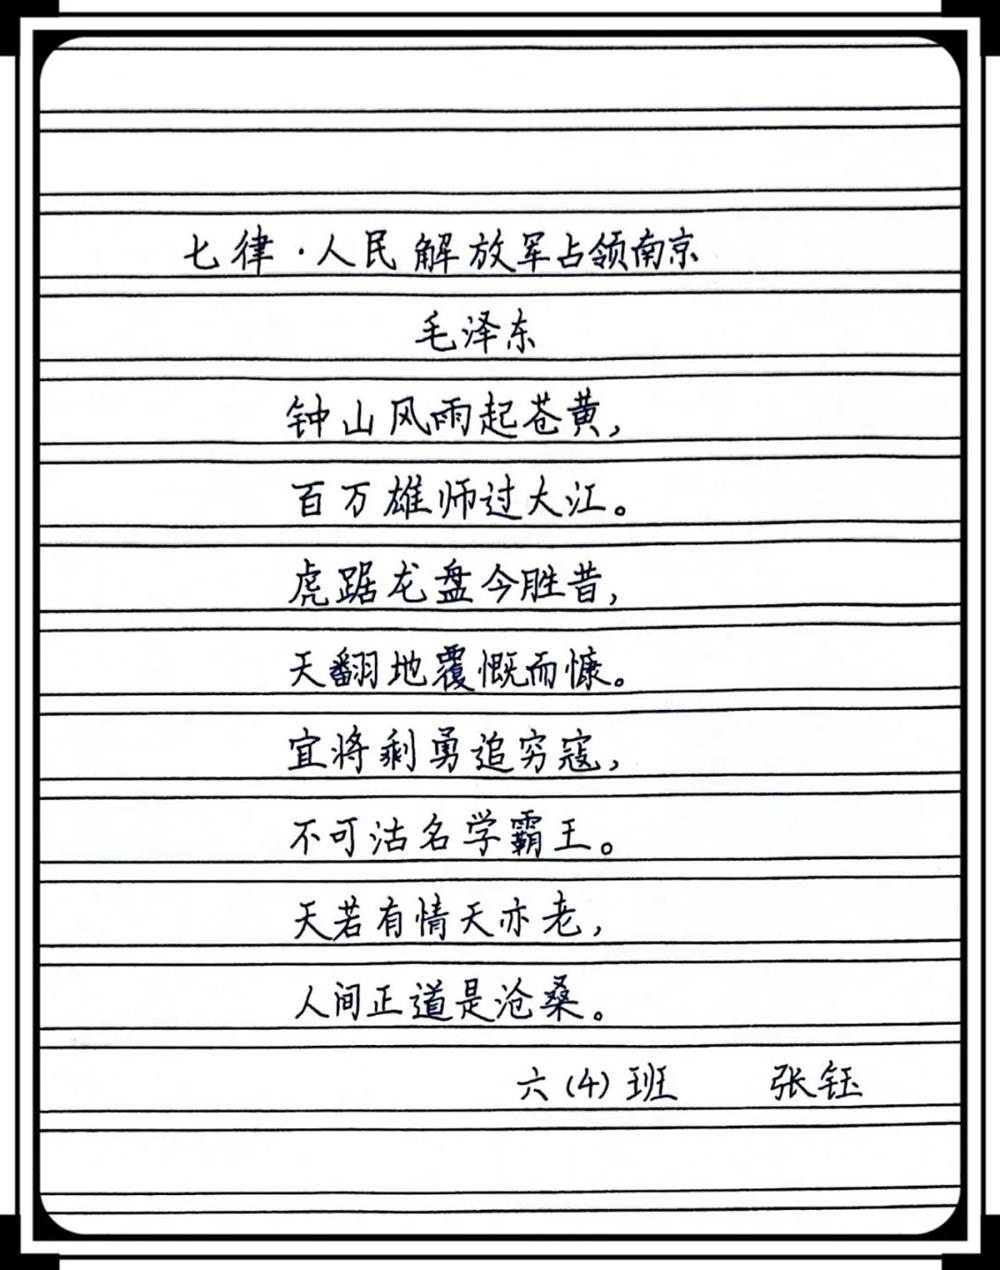 七律·人民解放军占领南京
毛泽东
钟山风雨起苍黄,
百万雄师过大江。
虎踞龙盘今胜昔,
天翻地覆慨而慷。
宜将剩勇追穷寇,
不可沽名学霸王。
天若有情天亦老,
人间正道是沧桑。
六(4)班 张钰